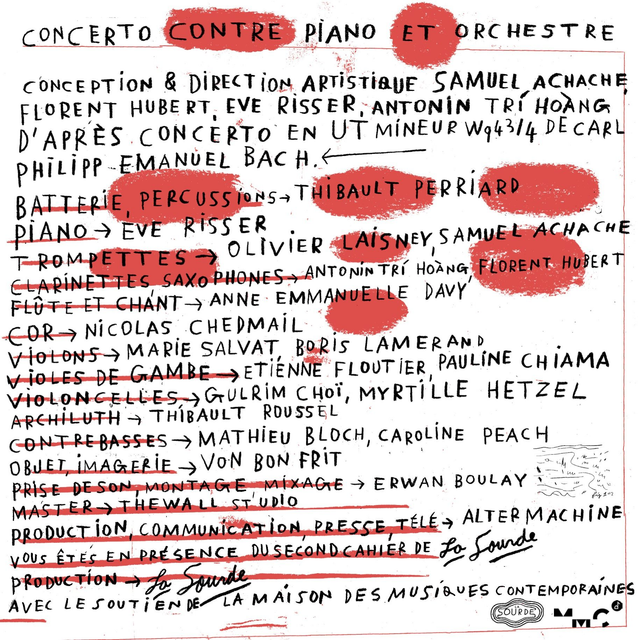 CONCERTO CONTRE PIANO ET ORCHESTRE
CONCEPTION & DIRECTION ARTISTIQUE SAMUEL ACHACHE,
FLORENT HUBERT, EVE RISSER, ANTONIN TRI HOÀNG
D'APRÈS CONCERTO EN UT MINEUR Wq43/4 DE CARL
PHILIPP EMANUEL BACH.
BATTERIE, PERCUSSIONS → THIBAULT PERRIARD
PIANO → EVE RISSER
TROMPETTES → OLIVIER LAISNEY, SAMUEL ACHACHE
CLARINETTES SAXOPHONES → ANTONIN TRI HOÀNG, FLORENT HUBERT
FLÛTE ET CHANT → ANNE EMMANUELLE DAVY
COR → NICOLAS CHEDMAIL
VIOLONS → MARIE SALVAT BORIS LAMERAND
VIOLES DE GAMBE → ETIENNE FLOUTIER, PAULINE CHIAMA
VIOLONCELLES → GULRIM CHOÏ, MYRTILLE HETZEL
ARCHILUTH → THIBAULT ROUSSEL
CONTREBASSES → MATHIEU BLOCH, CAROLINE PEACH
OBJET, IMAGERIE → VON BON FRIT
PRISE DE SON, MONTAGE MIXAGE → ERWAN BOULAY
MASTER → THEWALL STUDIO
PRODUCTION, COMMUNICATION, PRESSE, TÉLÉ → ALTERMACHINE
VOUS ÊTES EN PRÉSENCE DU SECOND CAHIER DE La Sourde
PRODUCTION → La Sourde
AVEC LE SOUTIEN DE LA MAISON DES MUSIQUES CONTEMPORAINES
SOURDE MMC